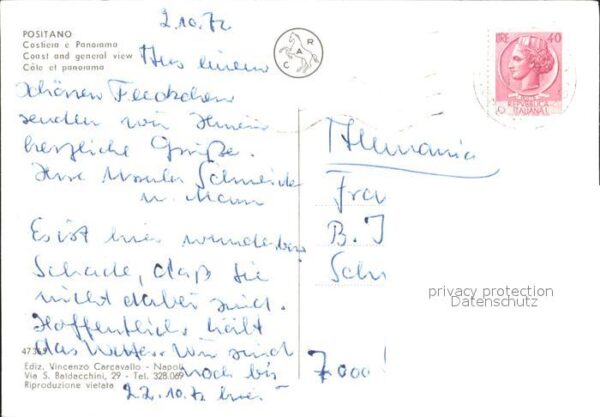 2.10.72
POSITANO
Costiera e Panorama
Coast and general view
Côte et panorama
CAR
LIRE 40
REPUBBLICA
ITALIANA
Aus einem
schönen Fleckchen
senden wir Ihnen
herzliche Grüße.
Ihre Ursula Schneider
u. Mann
Es ist hier wunderbar
Schade, daß Sie
nicht dabei sind.
Hoffentlich hält
das Wetter. Wir sind
noch bis
22.10.72 hier.
Allemania
Fra
B. J
Sch
7000
privacy protection
Datenschutz
Ediz. Vincenzo Carcavallo - Napoli
Via S. Baldacchini, 29 - Tel. 328.069
Riproduzione vietata